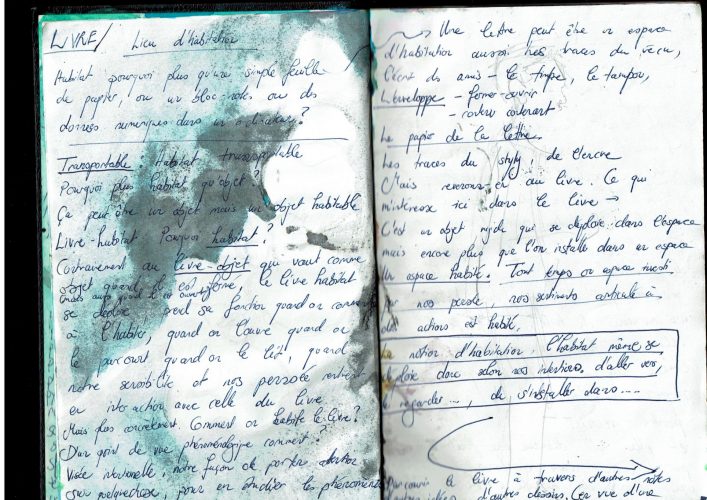 LIVRE/ Lieu d'habitation
Habitat pourquoi plus qu'une simple feuille
de papier, ou un bloc-notes ou des
données numériques dans un ordinateur ?
Transportable Habitat transportable
Pourquoi plus habitat qu'objet ?
Ça peut être un objet mais un objet habitable
Livre-habitat Pourquoi habitat ?
Contrairement au livre-objet qui vaut comme
objet quand il est fermé, le livre habitat
mais aussi quand il est ouvert
se déploie prend sa fonction quand on commence
à l'habiter, quand on l'ouvre quand on
le parcourt quand on le lit, quand
notre sensibilité et nos pensées rentrent
en interaction avec celle du livre.
Mais plus concrètement. Comment on habite le livre ?
D'un point de vue phénoménologique comment ?
Visée intentionnelle, notre façon de porter attention
pour en étudier les phénomènes
Une lettre peut être un espace
d'habitation aussi des traces du vécu,
l'écrit des amis - le timbre, le tampon,
L'enveloppe - fermer-ouvrir
- contenu contenant
Le papier de la lettre.
Les traces du stylo, de l'encre
Mais revenons en au livre. Ce qui
m'intéresse ici dans le livre →
C'est un objet qui se déploie dans l'espace
mais encore plus que l'on installe dans un espace
Un espace habité. Tout temps ou espace investi
par nos pensée, nos sentiments articulés à
des actions est habité.
La notion d'habitation, l'habitat même se
déploie donc selon nos intentions, d'aller vers,
de regarder ..., de s'installer dans .....
Parcourir le livre à travers d'autres notes
d'autres idées d'autres dessins. (en vue d'une